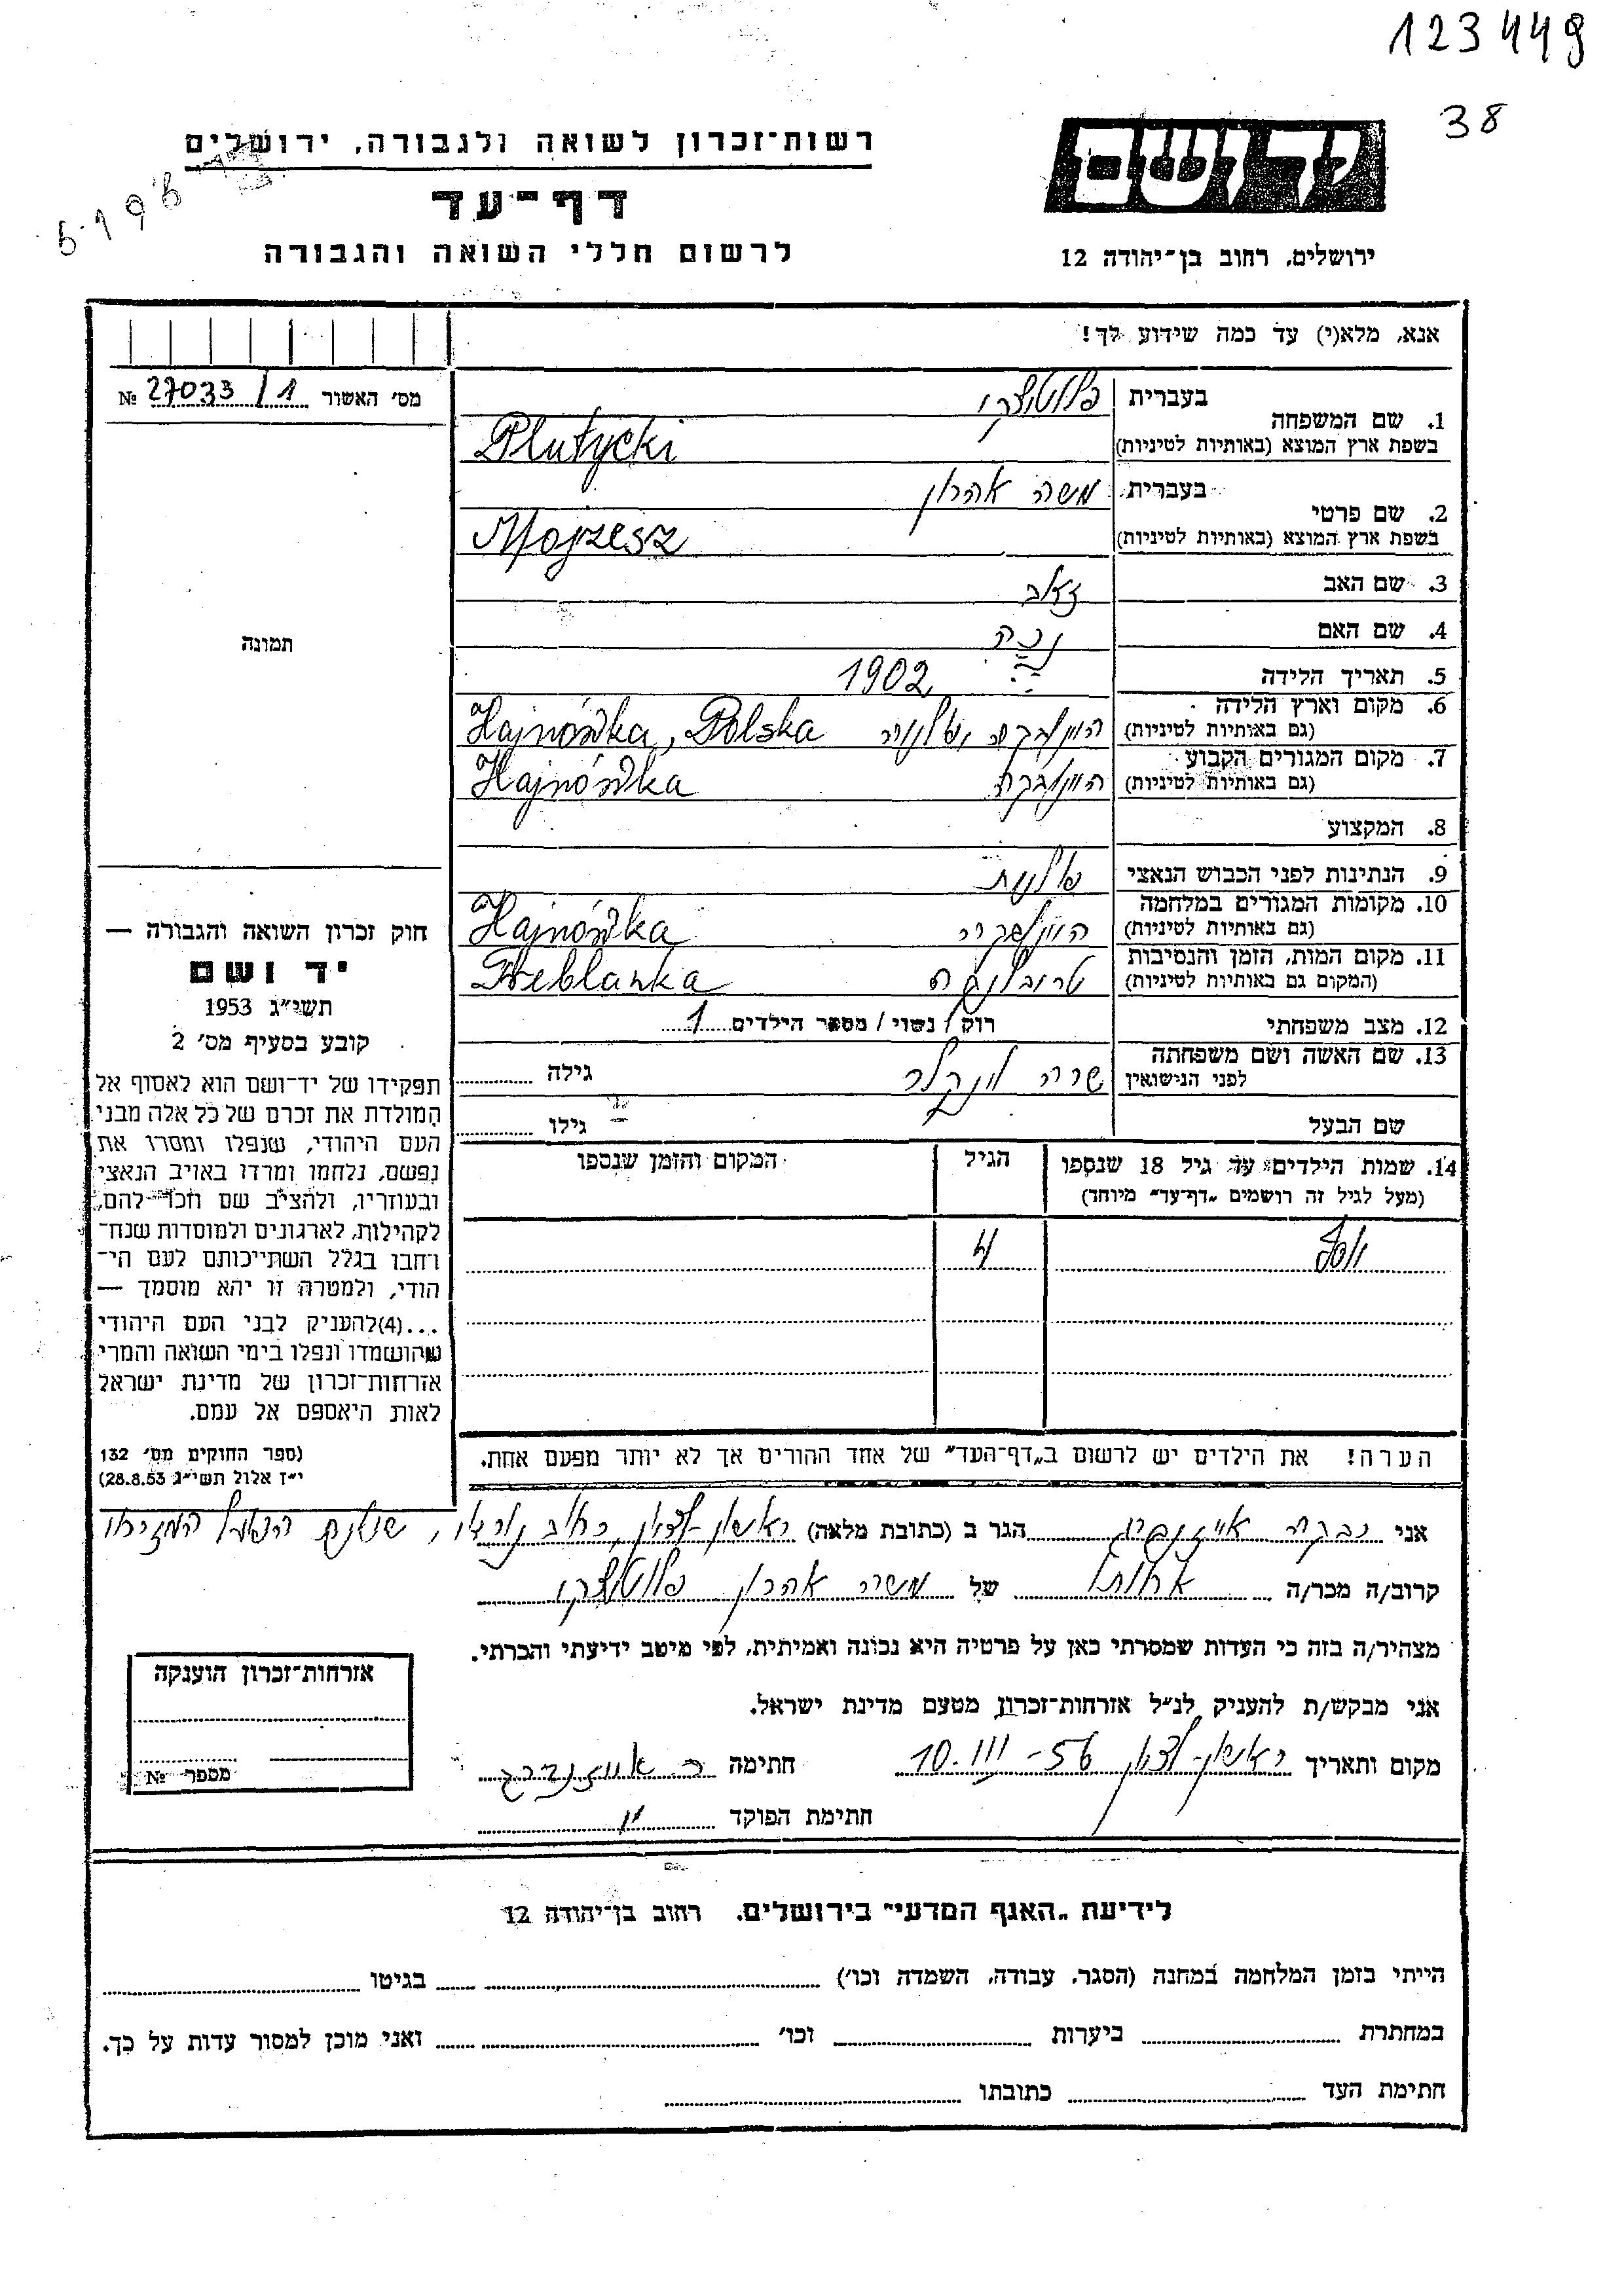 123449
38
יד ושם
רשות־זכרון לשואה ולגבורה, ירושלים
דף־עד
לרשום חללי השואה והגבורה
ירושלים, רחוב בן־יהודה 12
אנא, מלא(י) עד כמה שידוע לך!
מס׳ האשור 27033/1 №
תמונה
1. שם המשפחה
בעברית פלוטיצקי
בשפת ארץ המוצא (באותיות לטיניות) Plutycki
2. שם פרטי
בעברית משה אהרון
בשפת ארץ המוצא (באותיות לטיניות) Mojzesz
3. שם האב
4. שם האם
5. תאריך הלידה 1902
6. מקום וארץ הלידה
(גם באותיות לטיניות) Hajnówka, Polska
7. מקום המגורים הקבוע
(גם באותיות לטיניות) Hajnówka
8. המקצוע
9. הנתינות לפני הכבוש הנאצי פולנית
10. מקומות המגורים במלחמה
(גם באותיות לטיניות) Hajnówka
11. מקום המות, הזמן והנסיבות
(המקום גם באותיות לטיניות) טרובלינקה Treblanka
12. מצב משפחתי רוק / נשוי / מספר הילדים 1
13. שם האשה ושם משפחתה
לפני הנישואין שרה גילה
שם הבעל גילו
14. שמות הילדים עד גיל 18 שנספו
(מעל לגיל זה רושמים „דף־עד” מיוחד)
הגיל
המקום והזמן שנספו
יוסף 4
הערה! את הילדים יש לרשום ב„דף־העד” של אחד ההורים אך לא יותר מפעם אחת.
חוק זכרון השואה והגבורה —
יד ושם
תשי״ג 1953
קובע בסעיף מס׳ 2
תפקידו של יד־ושם הוא לאסוף אל
המולדת את זכרם של כל אלה מבני
העם היהודי, שנפלו ומסרו את
נפשם, נלחמו ומרדו באויב הנאצי
ובעוזריו, ולהציב שם וזכר להם,
לקהילות, לארגונים ולמוסדות שנח־
רבו בגלל השתייכותם לעם הי־
הודי, ולמטרה זו יהא מוסמך —
...(4) להעניק לבני העם היהודי
שהושמדו ונפלו בימי השואה והמרי
אזרחות־זכרון של מדינת ישראל
לאות היאספם אל עמם.
(ספר החוקים מס׳ 132
י״ז אלול תשי״ג 28.8.53)
אני רבקה איזנברג הגר ב (כתובת מלאה) ראשון־לציון, רחוב נורדאו, שכונת הפועל המזרחי
קרוב/ה מכר/ה אחותו של משה אהרון פלוטיצקי
מצהיר/ה בזה כי העדות שמסרתי כאן על פרטיה היא נכונה ואמיתית, לפי מיטב ידיעתי והכרתי.
אני מבקש/ת להעניק לנ״ל אזרחות־זכרון מטעם מדינת ישראל.
מקום ותאריך ראשון־לציון 10.III-56 חתימה ר. איזנברג
חתימת הפוקד
אזרחות־זכרון הוענקה
מספר №
לידיעת „האגף המדעי” בירושלים, רחוב בן־יהודה 12
הייתי בזמן המלחמה במחנה (הסגר, עבודה, השמדה וכו׳) בגיטו
במחתרת ביערות וכו׳ ואני מוכן למסור עדות על כך.
חתימת העד כתובתו